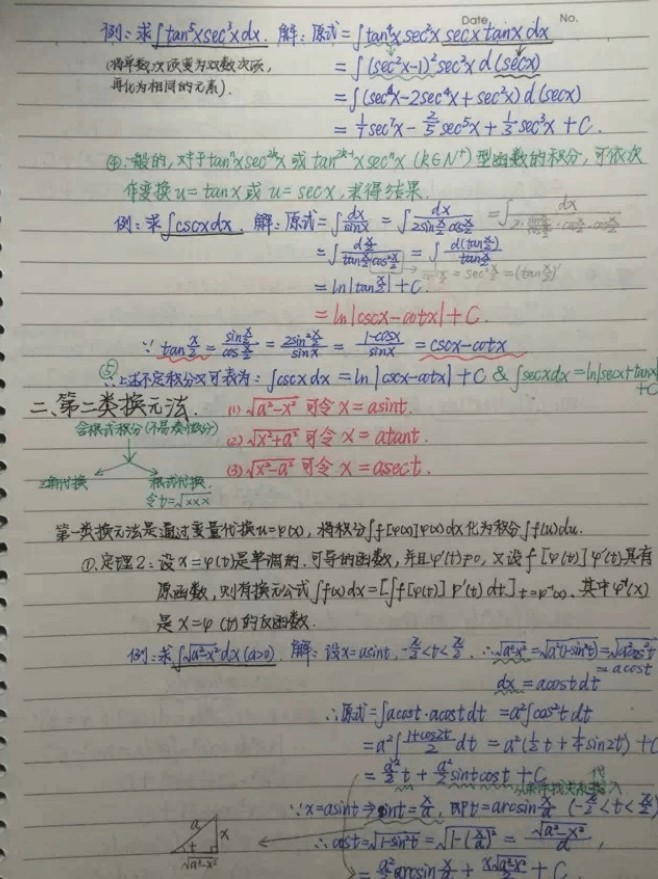 Date. No.
例: 求∫tan⁵xsec³xdx. 解: 原式=∫tan⁴xsec²xsecxtanxdx
(将单数次项变为双数次项, =∫(sec²x-1)²sec²xd(secx)
再化为相同的元素). =∫(sec⁶x-2sec⁴x+sec²x)d(secx)
=1/7sec⁷x-2/5sec⁵x+1/3sec³x+C.
④.一般的, 对于tanⁿxsec²ᵏx 或 tan²ᵏ⁻¹xsecⁿx (k∈N⁺)型函数的积分, 可依次
作变换u=tanx或u=secx, 求得结果.
例: 求∫cscxdx. 解: 原式=∫dx/sinx =∫dx/(2sin x/2 cos x/2) =∫dx/(2·(sin x/2)/(cos x/2)·cos x/2·cos x/2)
=∫d(x/2)/(tan x/2 cos² x/2) =∫d(tan x/2)/(tan x/2)
=ln|tan x/2|+C. =sec² x/2=(tan x/2)'
=ln|cscx-cotx|+C.
∵tan x/2=(sin x/2)/(cos x/2)=(2sin² x/2)/sinx=(1-cosx)/sinx=cscx-cotx
⑤∴上述不定积分又可表为: ∫cscxdx=ln|cscx-cotx|+C & ∫secxdx=ln|secx+tanx|
+C
二、第二类换元法. (1) √(a²-x²) 可令x=asint.
含根式积分(不易凑微分) (2) √(x²+a²) 可令x=atant.
(3) √(x²-a²) 可令x=asect.
三角代换 根式代换.
令t=√xxx
第一类换元法是通过变量代换u=φ(x), 将积分∫f[φ(x)]φ'(x)dx化为积分∫f(u)du.
①.定理2: 设x=φ(t)是单调的.可导的函数, 并且φ'(t)≠0, 又设f[φ(t)]φ'(t)具有
原函数, 则有换元公式∫f(x)dx=[∫f[φ(t)]φ'(t)dt]t=φ⁻¹(x). 其中φ⁻¹(x)
是x=φ(t)的反函数.
例: 求∫√(a²-x²)dx(a>0). 解: 设x=asint, -π/2<t<π/2. ∴√(a²-x²)=√(a²(1-sin²t))=√(a²cos²t)
=acost
dx=acostdt
∴原式=∫acost·acostdt=a²∫cos²tdt
=a²∫(1+cos2t)/2 dt=a²(1/2t+1/4sin2t)+C
=a²/2 t+a²/2 sintcost+C
∵x=asint⇒sint=x/a, 即t=arcsin x/a (-π/2<t<π/2)
a x t √(a²-x²) ∴cost=√(1-sin²t)=√(1-(x/a)²)=√(a²-x²)/a,
=a²/2 arcsin x/a+x√(a²-x²)/2+C.